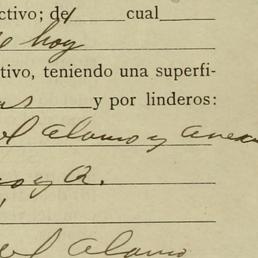 ctivo; de cual
de hoy
tivo, teniendo una superfi-
as y por linderos:
el Alamo y Anexo
o y A.
el Alamo